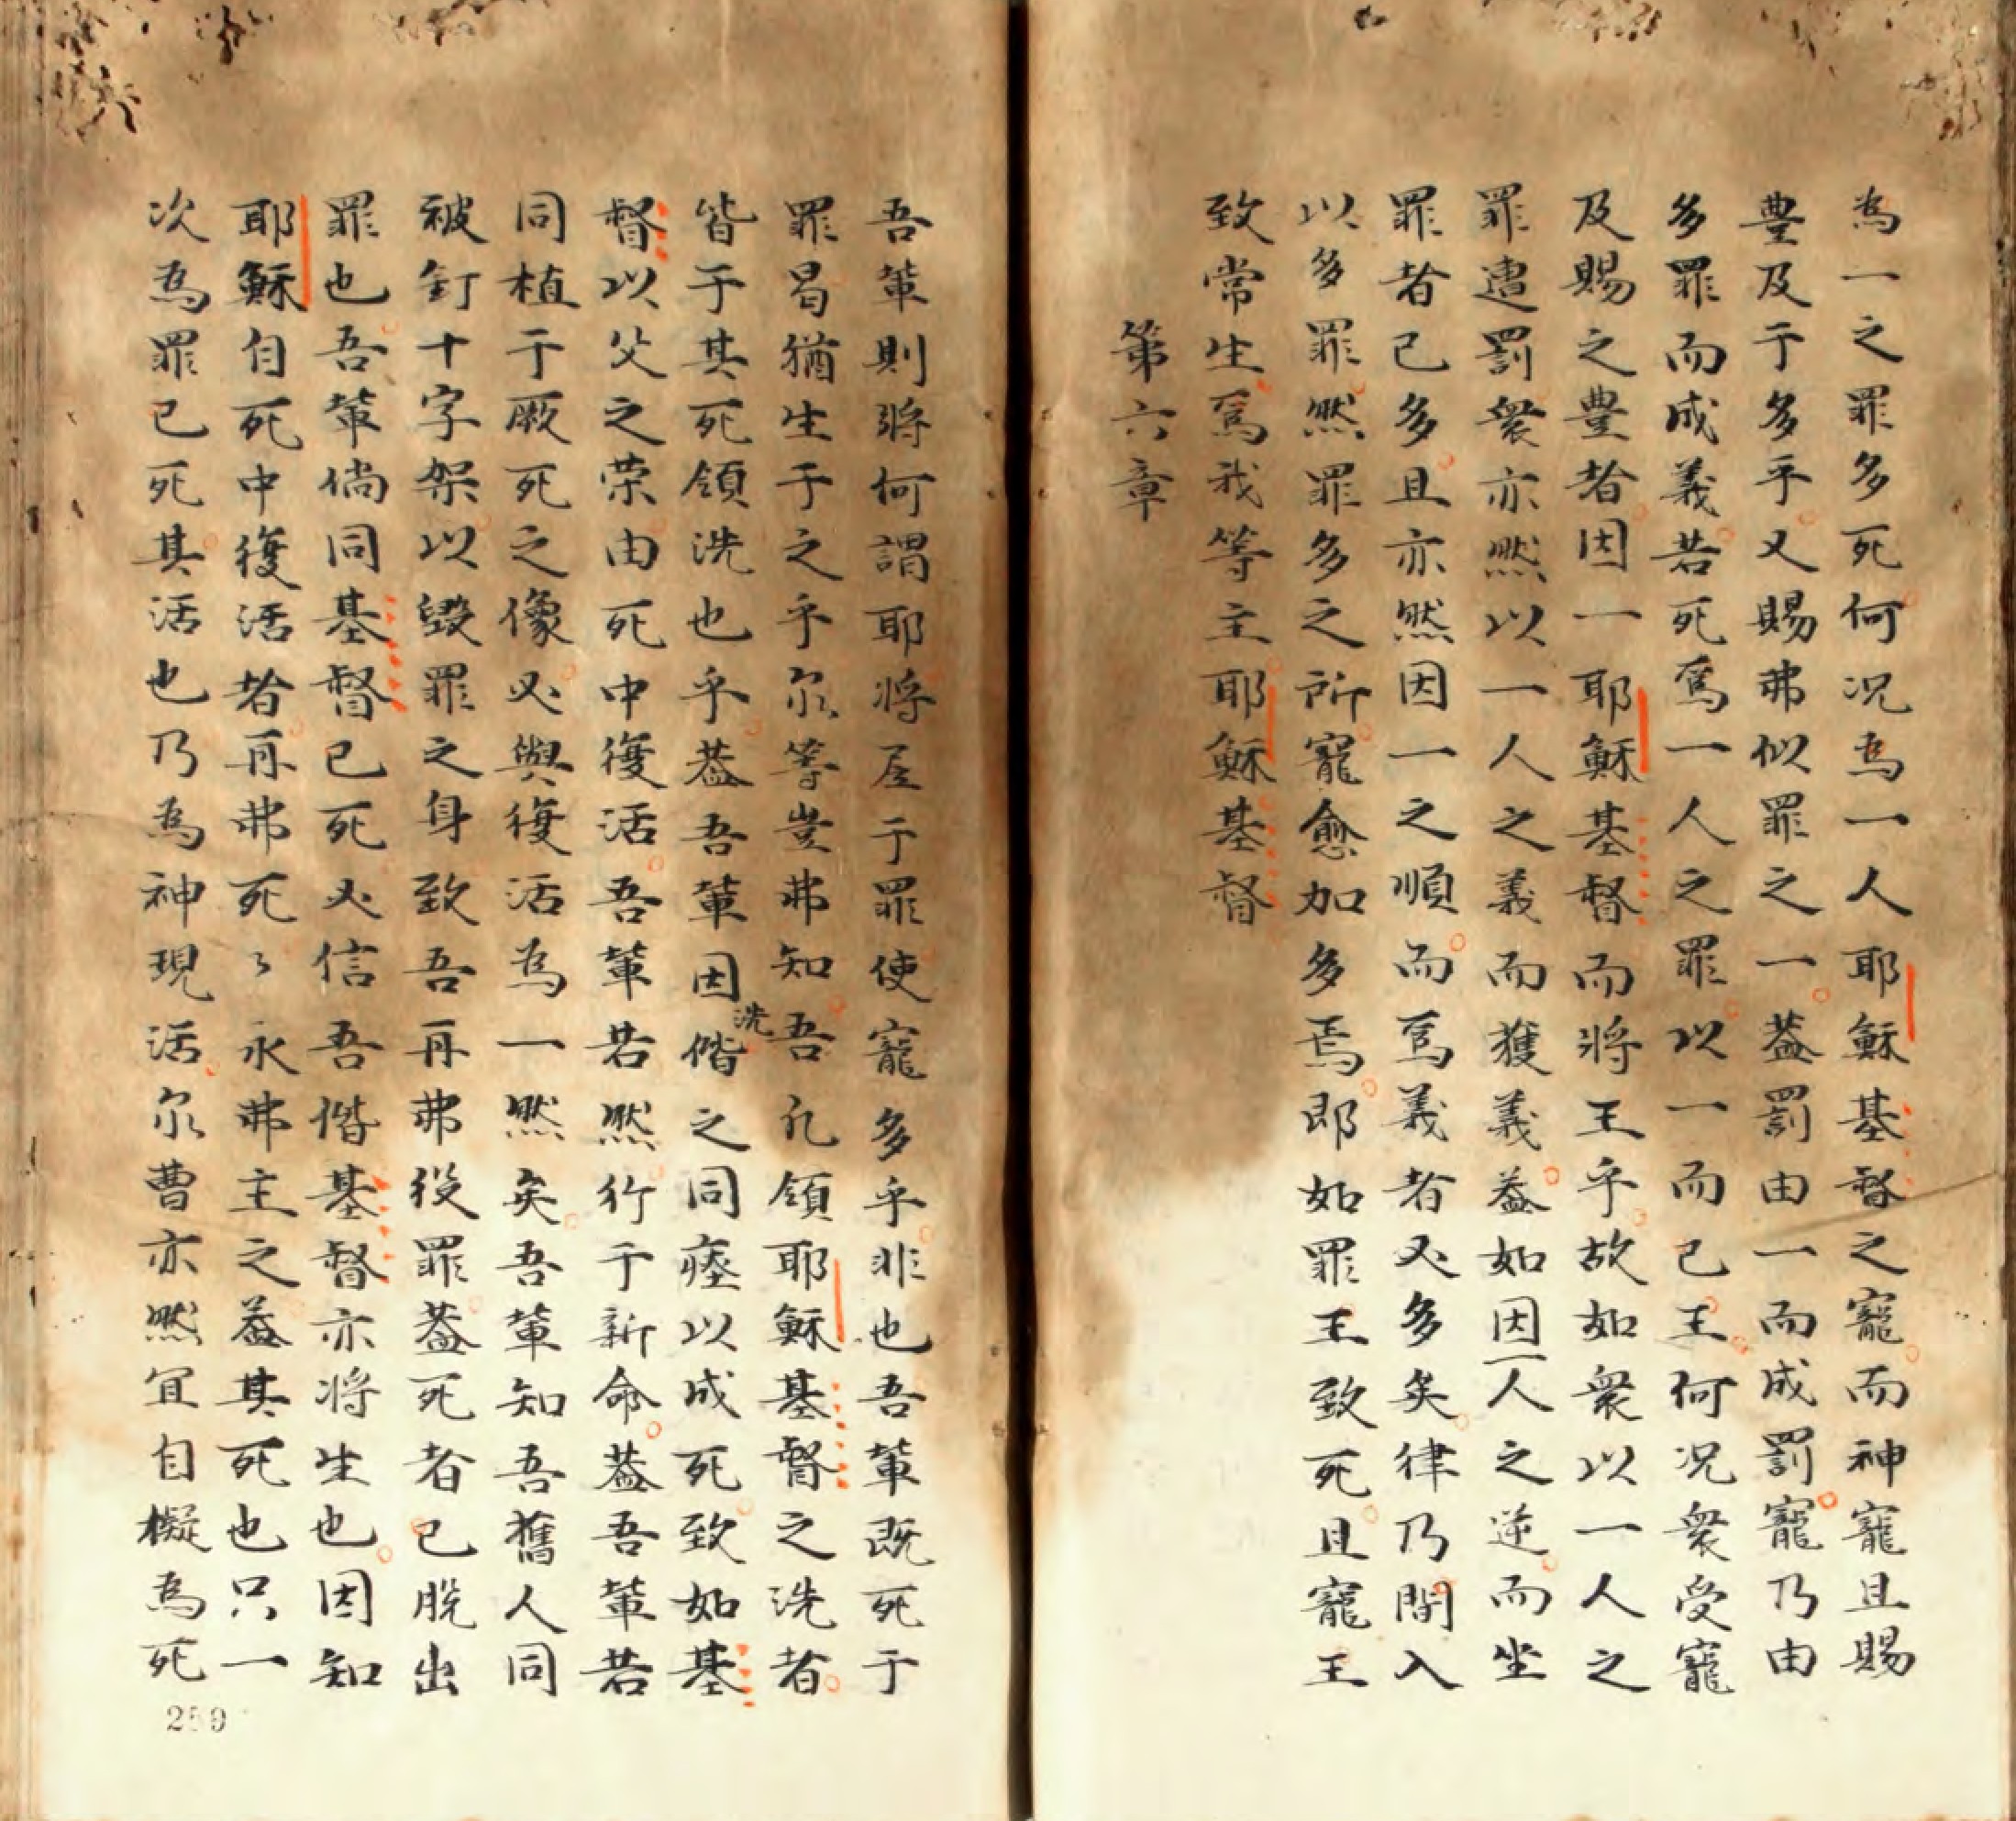 為一之罪多死何况為一人耶穌基督之寵而神寵且賜
豊及于多乎又賜弗似罪之一葢罰由一而成罰寵乃由
多罪而成義若死焉一人之罪以一而已王何况衆受寵
及賜之豊者因一耶穌基督而將王乎故如衆以一人之
罪遭罰衆亦然以一人之義而獲義葢如因一人之逆而坐
罪者已多且亦然因一之順而爲義者必多矣律乃間入
以多罪然罪多之所寵愈加多焉即如罪王致死且寵王
致常生焉我等主耶穌基督
第六章
吾輩則將何謂耶將居于罪使寵多乎非也吾輩既死于
罪曷猶生于之乎尔等豈弗知吾凡領耶穌基督之洗者
皆于其死領洗也乎葢吾輩因洗偕之同瘞以成死致如基
督以父之荣由死中復活吾輩若然行于新命葢吾輩若
同植于厥死之像必與復活為一然矣吾輩知吾舊人同
被釘十字架以毀罪之身致吾再弗役罪葢死者已脫出
罪也吾輩倘同基督已死必信吾偕基督亦将生也因知
耶穌自死中復活者再弗死〻永弗主之葢其死也只一
次為罪已死其活也乃為神現活尔曹亦然宜自擬為死
259